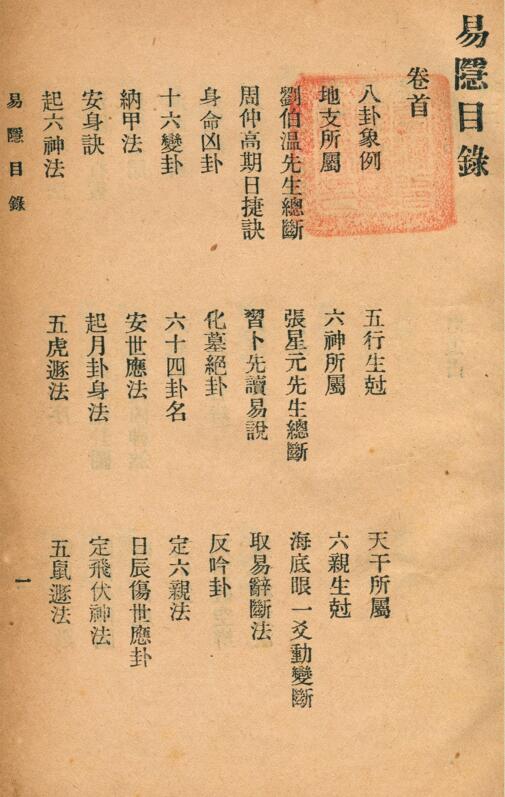 易隱目錄
卷首
八卦象例　五行生尅　天干所屬
地支所屬　六神所屬　六親生尅
劉伯温先生總斷　張星元先生總斷　海底眼一爻動變斷
周仲高期日捷訣　習卜先讀易說　取易辭斷法
身命凶卦　化墓絕卦　反吟卦
十六變卦　六十四卦名　定六親法
納甲法　安世應法　日辰傷世應卦
安身訣　起月卦身法　定飛伏神法
起六神法　五虎遯法　五鼠遯法
易隱目錄　一